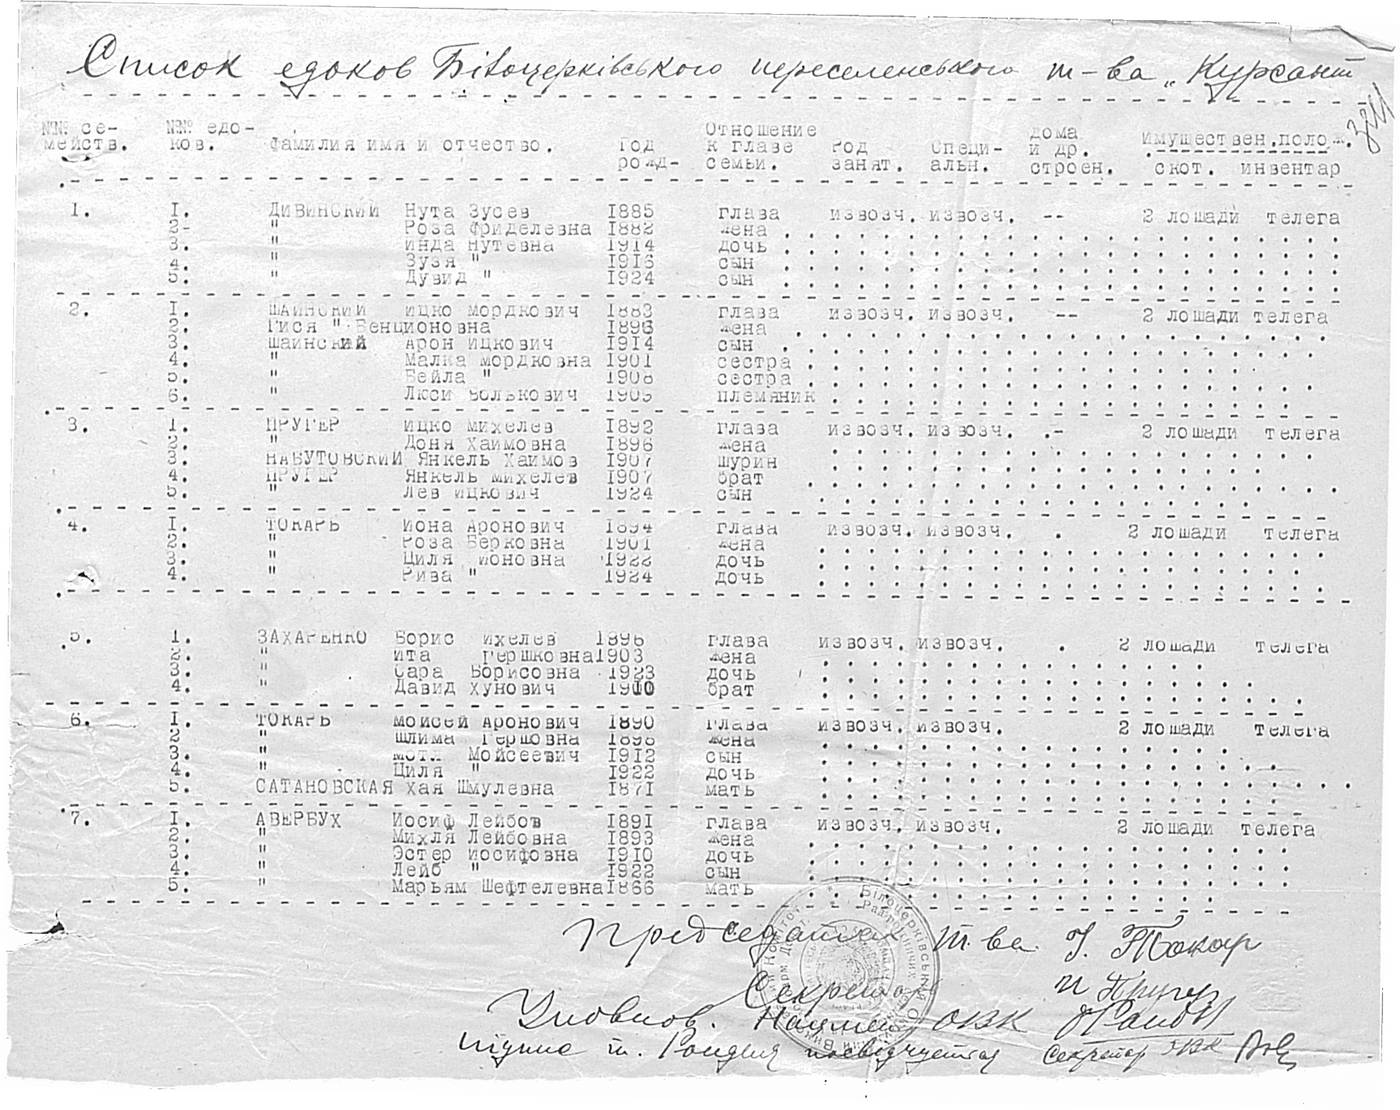 Список едоков Білоцерківського переселенського т-ва „Курсант"
№№ се- №№ едо- Фамилия имя и отчество. Год Отношение Род Специ- дома Имуществен.полож.
мейств. ков. рожд- к главе занят. альн. и др. скот. инвентар
семьи. строен.
1. I. ДИВИНСКИЙ Нута Зусев 1885 глава извозч. извозч. -- 2 лошади телега
2- " Роза Фриделевна 1882 жена
3. " Инда Нутевна 1914 дочь
4. " Зузя " 1916 сын
5. " Дувид " 1924 сын
2. I. ШАИНСКИЙ Ицко Мордкович 1883 глава извозч. извозч. -- 2 лошади телега
2. Гися " Бенционовна 1896 жена
3. Шаинский Арон Ицкович 1914 сын
4. " Малка Мордковна 1901 сестра
5. " Бейла " 1908 сестра
6. " Люси Волькович 1905 племяник
3. 1. ПРУГЕР Ицко Михелев 1892 глава извозч. извозч. .- 2 лошади телега
2. " Доня Хаимовна 1896 жена
3. НАБУТОВСКИЙ Янкель Хаимов 1907 шурин
4. ПРУГЕР Янкель Михелев 1907 брат
5. " Лев Ицкович 1924 сын
4. I. ТОКАРЬ Иона Аронович 1894 глава извозч. извозч. . 2 лошади телега
2. " Роза Берковна 1901 жена
3. " Циля Ионовна 1922 дочь
4. " Рива " 1924 дочь
5. 1. ЗАХАРЕНКО Борис ихелев 1896 глава извозч. извозч. . 2 лошади телега
2. " Ита Гершковна 1903 жена
3. " Сара Борисовна 1923 дочь
4. " Давид Хунович 1910 брат
6. I. ТОКАРЬ Моисей Аронович 1890 глава извозч. извозч. 2 лошади телега
2 " Шлима Гершовна 1898 жена
3. " Мотл Мойсеевич 1912 сын
4. " Циля " 1922 дочь
5. САТАНОВСКАЯ Хая Шмулевна 1871 мать
7. I. АВЕРБУХ Иосиф Лейбов 1891 глава извозч. извозч. 2 лошади телега
2 " Михля Лейбовна 1893 жена
3. " Эстер Иосифовна 1910 дочь
4. " Лейб " 1922 сын
5. " Марьям Шефтелевна 1866 мать
Председатель т-ва І. Токар
Секретар И Пругер
Уповнов. Нацмен ОВК
Підпис т. посвідчується Секретар ОВК